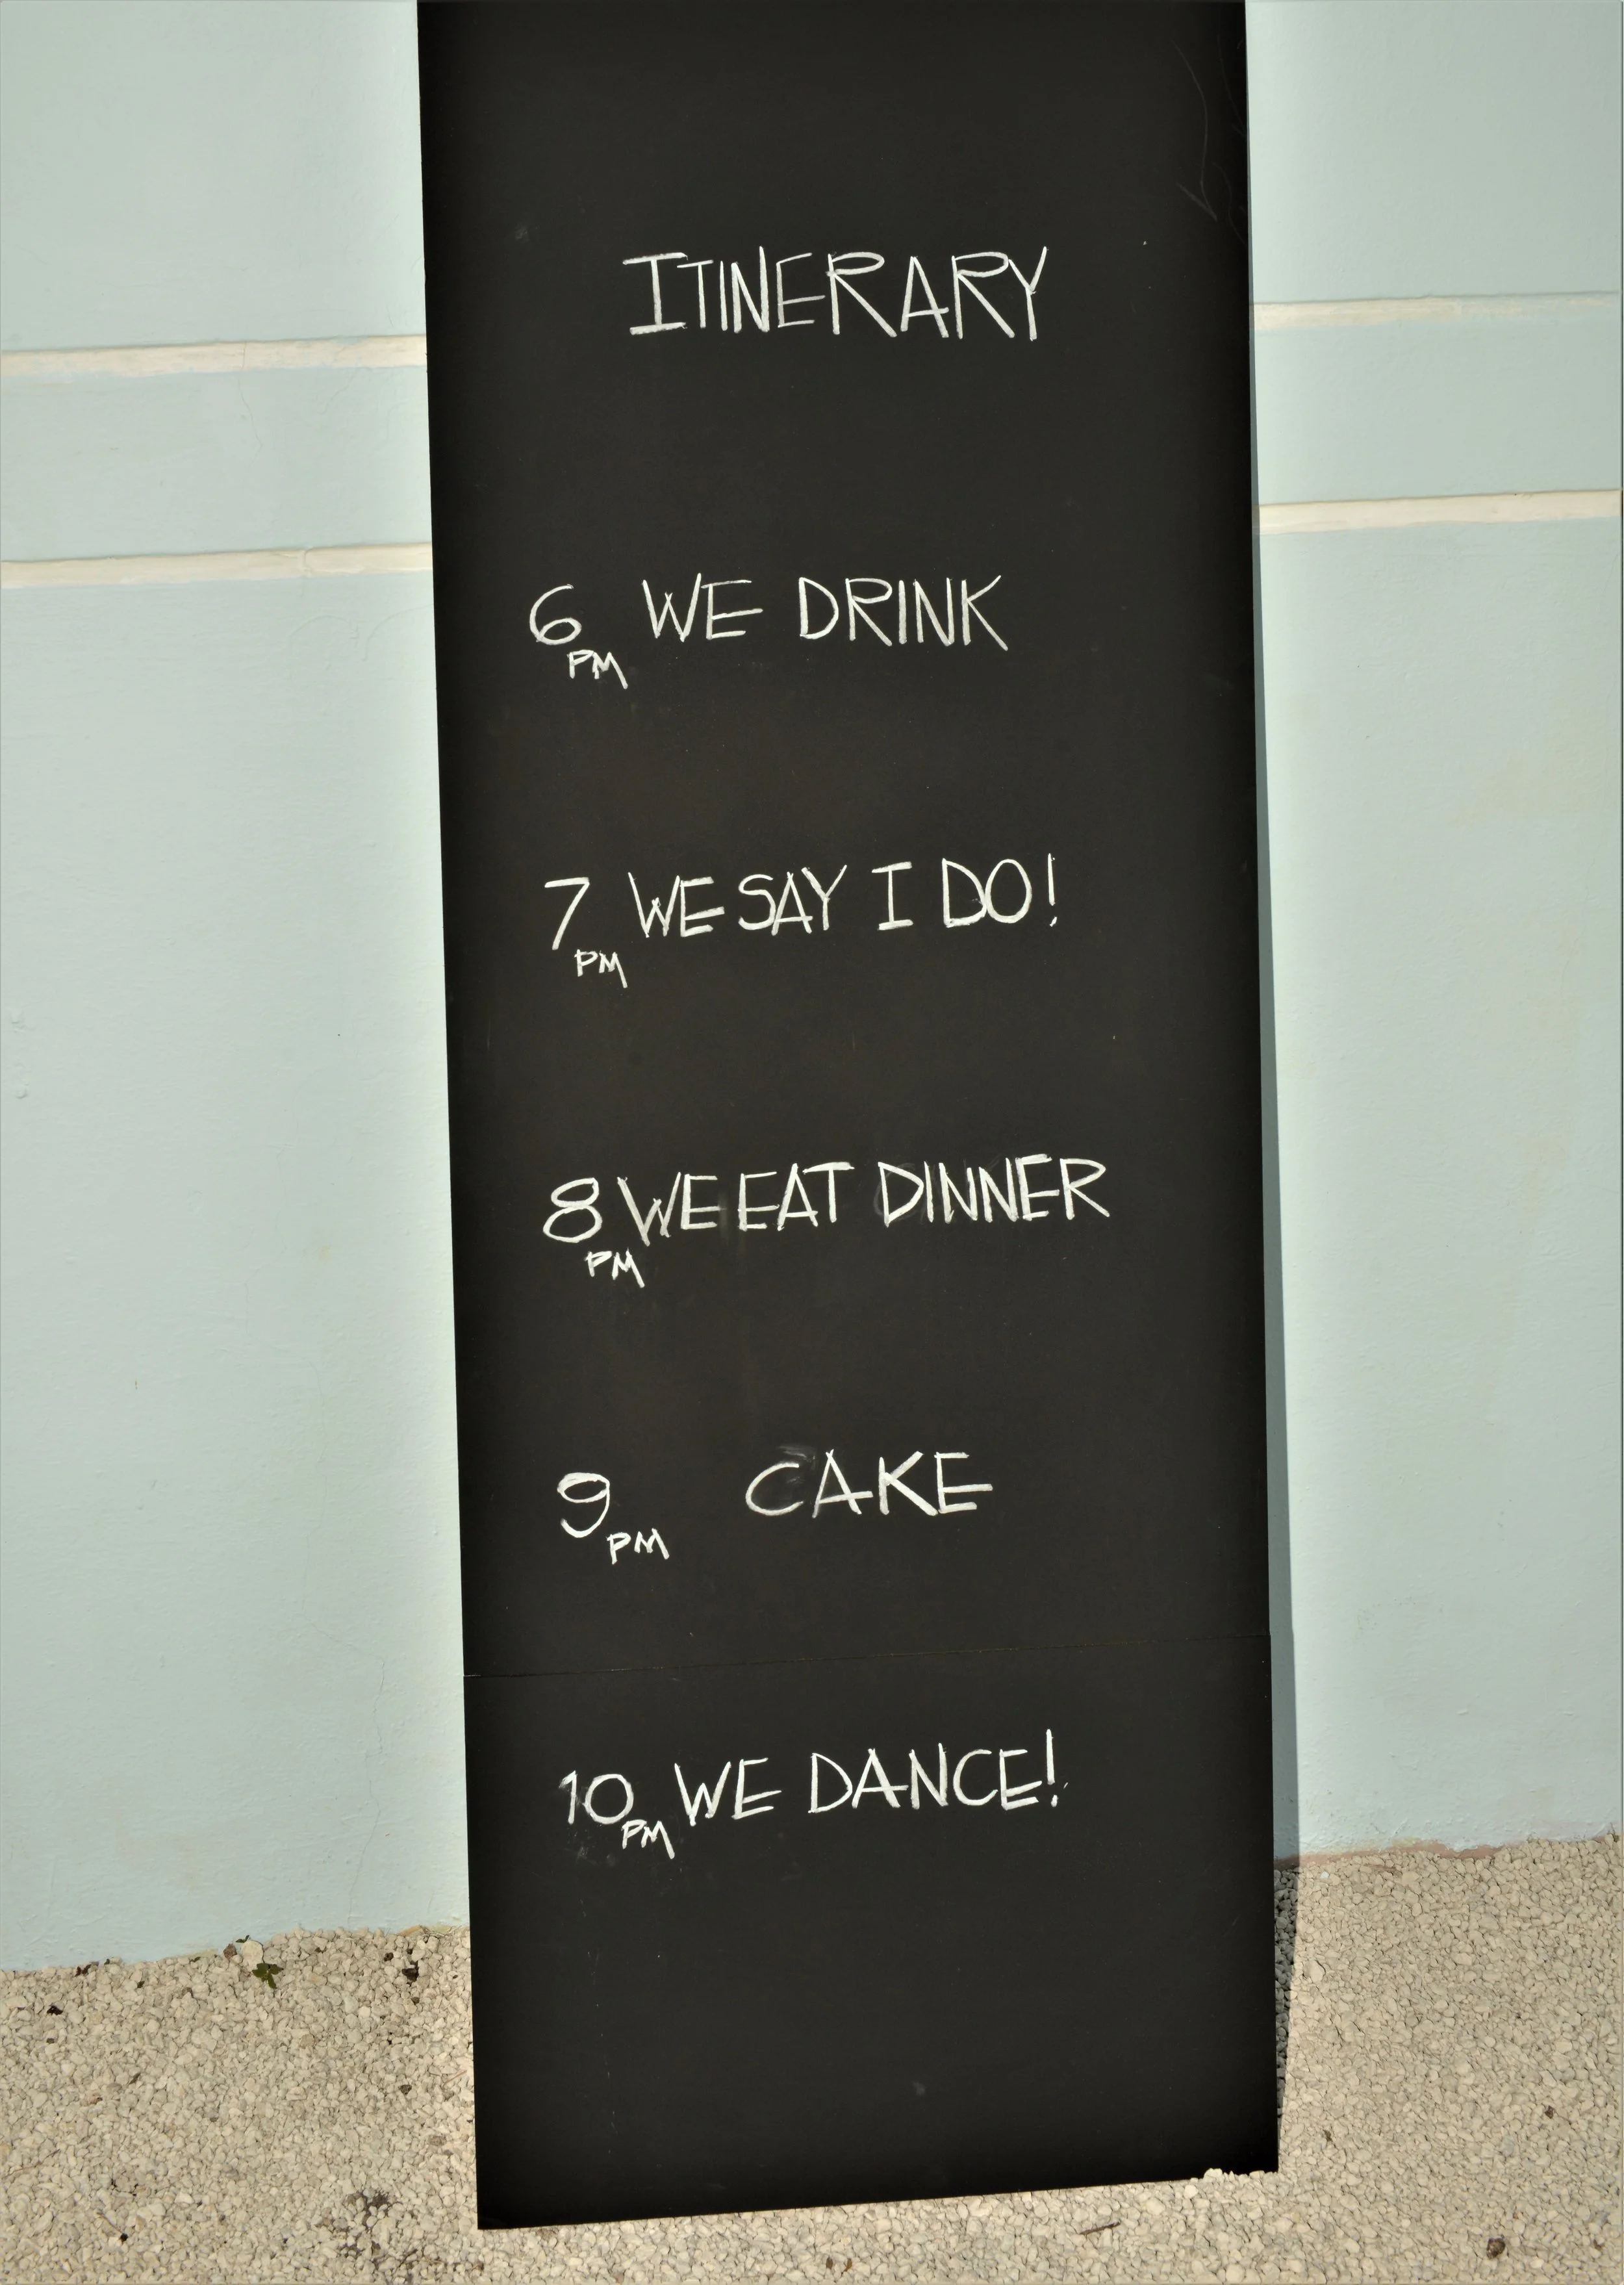 ITINERARY
6 PM WE DRINK
7 PM WE SAY I DO!
8 PM WE EAT DINNER
9 PM CAKE
10 PM WE DANCE!